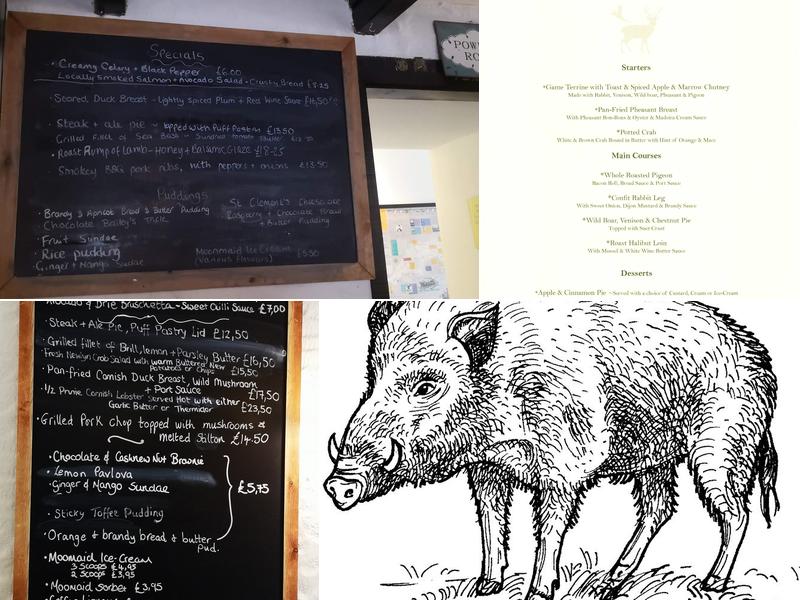 Specials
• Creamy Celery + Black Pepper £6.00
Locally Smoked Salmon + Avocado Salad + Crusty Bread £7.25
• Seared Duck Breast - Lightly spiced Plum + Red Wine Sauce £16,50
• Steak + ale pie ~ topped with Puff Pastry £13.50
Grilled Fillet of Sea Bass ~
• Roast Rump of Lamb - Honey + Balsamic Glaze £18-25
Smokey BBQ pork ribs, with peppers + onions £13.50
Puddings
• Brandy & Apricot Bread & Butter Pudding
Chocolate Bailey's Trifle
• Fruit Sundae
• Rice pudding
• Ginger + Mango Sundae
St Clement's Cheesecake
Raspberry + Chocolate Bread
+ Butter Pudding
Moonmaid Ice Cream
(Various Flavours) £5.50
POW
RO
Starters
*Game Terrine with Toast & Spiced Apple & Marrow Chutney
Made with Rabbit, Venison, Wild boar, Pheasant & Pigeon
*Pan-Fried Pheasant Breast
With Pheasant Bon-Bons & Oyster & Madeira Cream Sauce
*Potted Crab
White & Brown Crab Bound in Butter with Hint of Orange & Mace
Main Courses
*Whole Roasted Pigeon
Bacon Roll, Bread Sauce & Port Sauce
*Confit Rabbit Leg
With Sweet Onion, Dijon Mustard & Brandy Sauce
*Wild Boar, Venison & Chestnut Pie
Topped with Suet Crust
*Roast Halibut Loin
With Mussel & White Wine Butter Sauce
Desserts
*Apple & Cinnamon Pie ~Served with a choice of Custard, Cream or Ice-Cream
Avocado & Brie Bruschetta - Sweet Chilli Sauce £7,00
• Steak + Ale Pie, Puff Pastry Lid £12,50
• Grilled fillet of Brill, lemon + Parsley Butter £16,50
• Fresh Newlyn Crab Salad with warm Buttered New
Potatoes or Chips £15,50
• Pan-fried Cornish Duck Breast, wild mushroom
+ Port Sauce £17,50
• 1/2 Prime Cornish Lobster Served Hot with either
Garlic Butter or Thermidor £23,50
• Grilled Pork chop topped with mushrooms &
melted Stilton £14.50
• Chocolate & Cashew Nut Brownie
• Lemon Pavlova
• Ginger & Mango Sundae
£5,75
• Sticky Toffee Pudding
• Orange & brandy bread & butter
pud.
• Moomaid Ice-Cream
3 Scoops £4,95
2 Scoops £3,95
• Moomaid sorbet £3,95